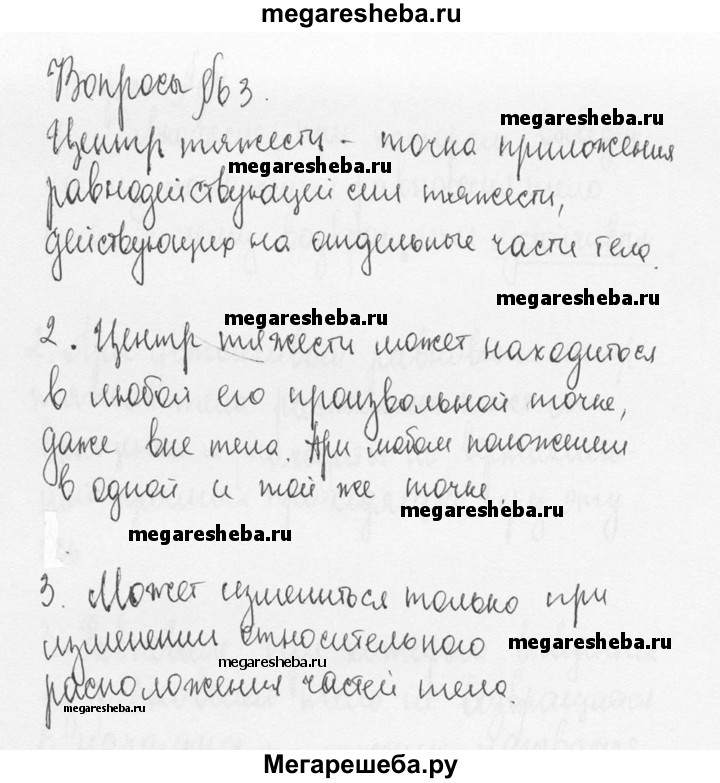 megaresheba.ru
Вопросы §63.
megaresheba.ru
Центр тяжести - точка приложения
megaresheba.ru
равнодействующей сил тяжести,
действующих на отдельные части тела.
megaresheba.ru
megaresheba.ru
2. Центр тяжести может находиться
в любой его произвольной точке,
даже вне тела. При любом положении
в одной и той же точке.
megaresheba.ru
megaresheba.ru
3. Может измениться только при
изменении относительного
megaresheba.ru
megaresheba.ru
расположения частей тела.
megaresheba.ru
Мегарешеба.ру